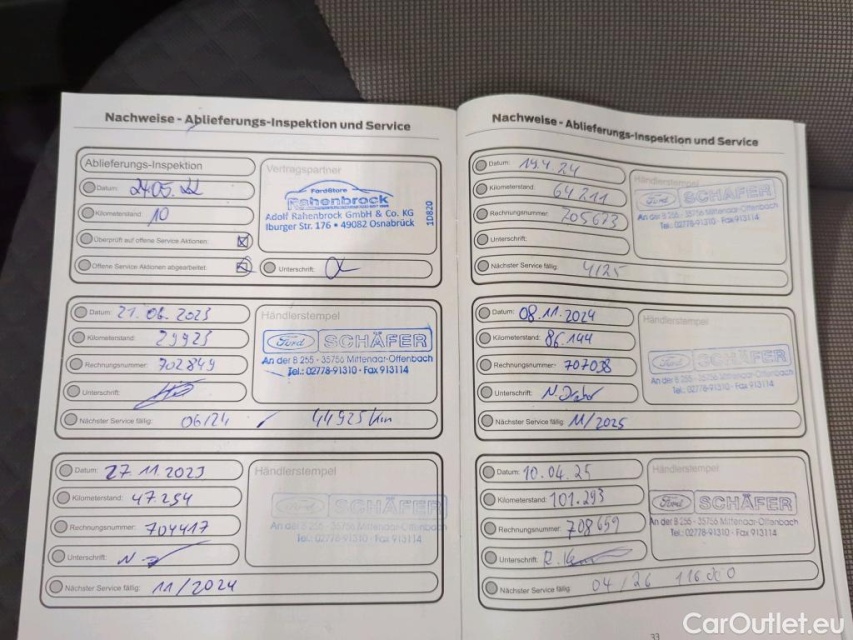 Nachweise - Ablieferungs-Inspektion und Service
Ablieferungs-Inspektion
Datum:
Kilometerstand: 10
Überprüft auf offene Service Aktionen:
Offene Service Aktionen abgearbeitet:
Vertragspartner
FordStore
Rahenbrock
Adolf Rahenbrock GmbH & Co. KG
Iburger Str. 176 • 49082 Osnabrück
1D820
Unterschrift:
Datum: 21.06.2023
Kilometerstand: 29925
Rechnungsnummer: 702849
Unterschrift:
Nächster Service fällig: 06/24 44925 km
Händlerstempel
Ford SCHÄFER
An der B 255 - 35756 Mittenaar-Offenbach
Tel.: 02778-91310 · Fax 913114
Datum: 27 11 2023
Kilometerstand: 47.254
Rechnungsnummer: 704417
Unterschrift:
Nächster Service fällig: 11/2024
Händlerstempel
Ford SCHÄFER
An der B 255 - 35756 Mittenaar-Offenbach
Tel.: 02778-91310 · Fax 913114
Nachweise - Ablieferungs-Inspektion und Service
Datum: 19.4.24
Kilometerstand: 64211
Rechnungsnummer: 705673
Unterschrift:
Nächster Service fällig: 4/25
Händlerstempel
Ford SCHÄFER
An der B 255 - 35756 Mittenaar-Offenbach
Tel.: 02778-91310 · Fax 913114
Datum: 08.11.2024
Kilometerstand: 86.144
Rechnungsnummer: 707038
Unterschrift:
Nächster Service fällig: 11/2025
Händlerstempel
Ford SCHÄFER
An der B 255 - 35756 Mittenaar-Offenbach
Tel.: 02778-91310 · Fax 913114
Datum: 10.04.25
Kilometerstand: 101.293
Rechnungsnummer: 708659
Unterschrift:
Nächster Service fällig: 04/26 116000
Händlerstempel
Ford SCHÄFER
An der B 255 - 35756 Mittenaar-Offenbach
Tel.: 02778-91310 · Fax 913114
33
CarOutlet.eu